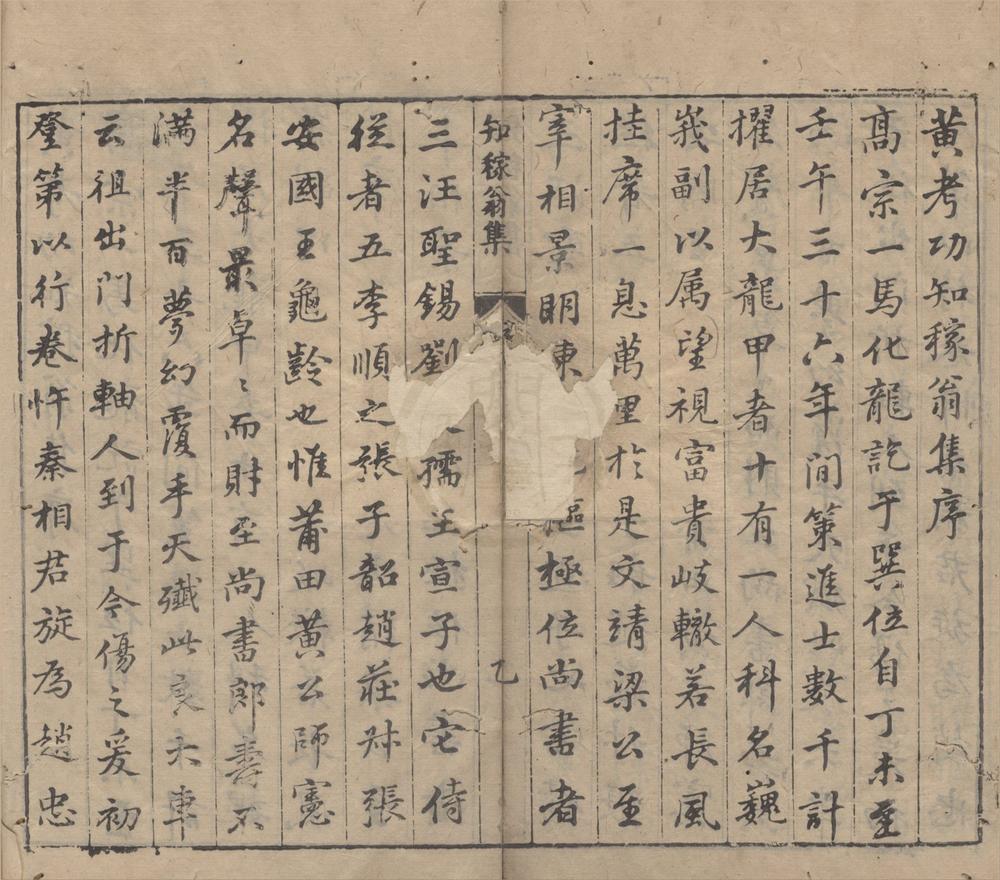 黄考功知稼翁集序
髙宗一馬化龍訖于巽位自丁未至
壬午三十六年間策進士數千計
擢居大龍甲者十有一人科名巍
峩副以属望視富貴岐轍若長風
挂席一息萬里於是文靖梁公至
宰相景明東極位尚書者
知稼翁集
乙
三汪聖錫劉孺王宣子也它侍
從者五李順之張子韶趙莊叔張
安國王龜齡也惟莆田黄公師憲
名聲最卓〻而財至尚書郎壽不
滿半百夢幻覆手天殲此良大車
云徂出門折軸人到于今傷之爰初
登第以行卷忤秦相君旋為趙忠